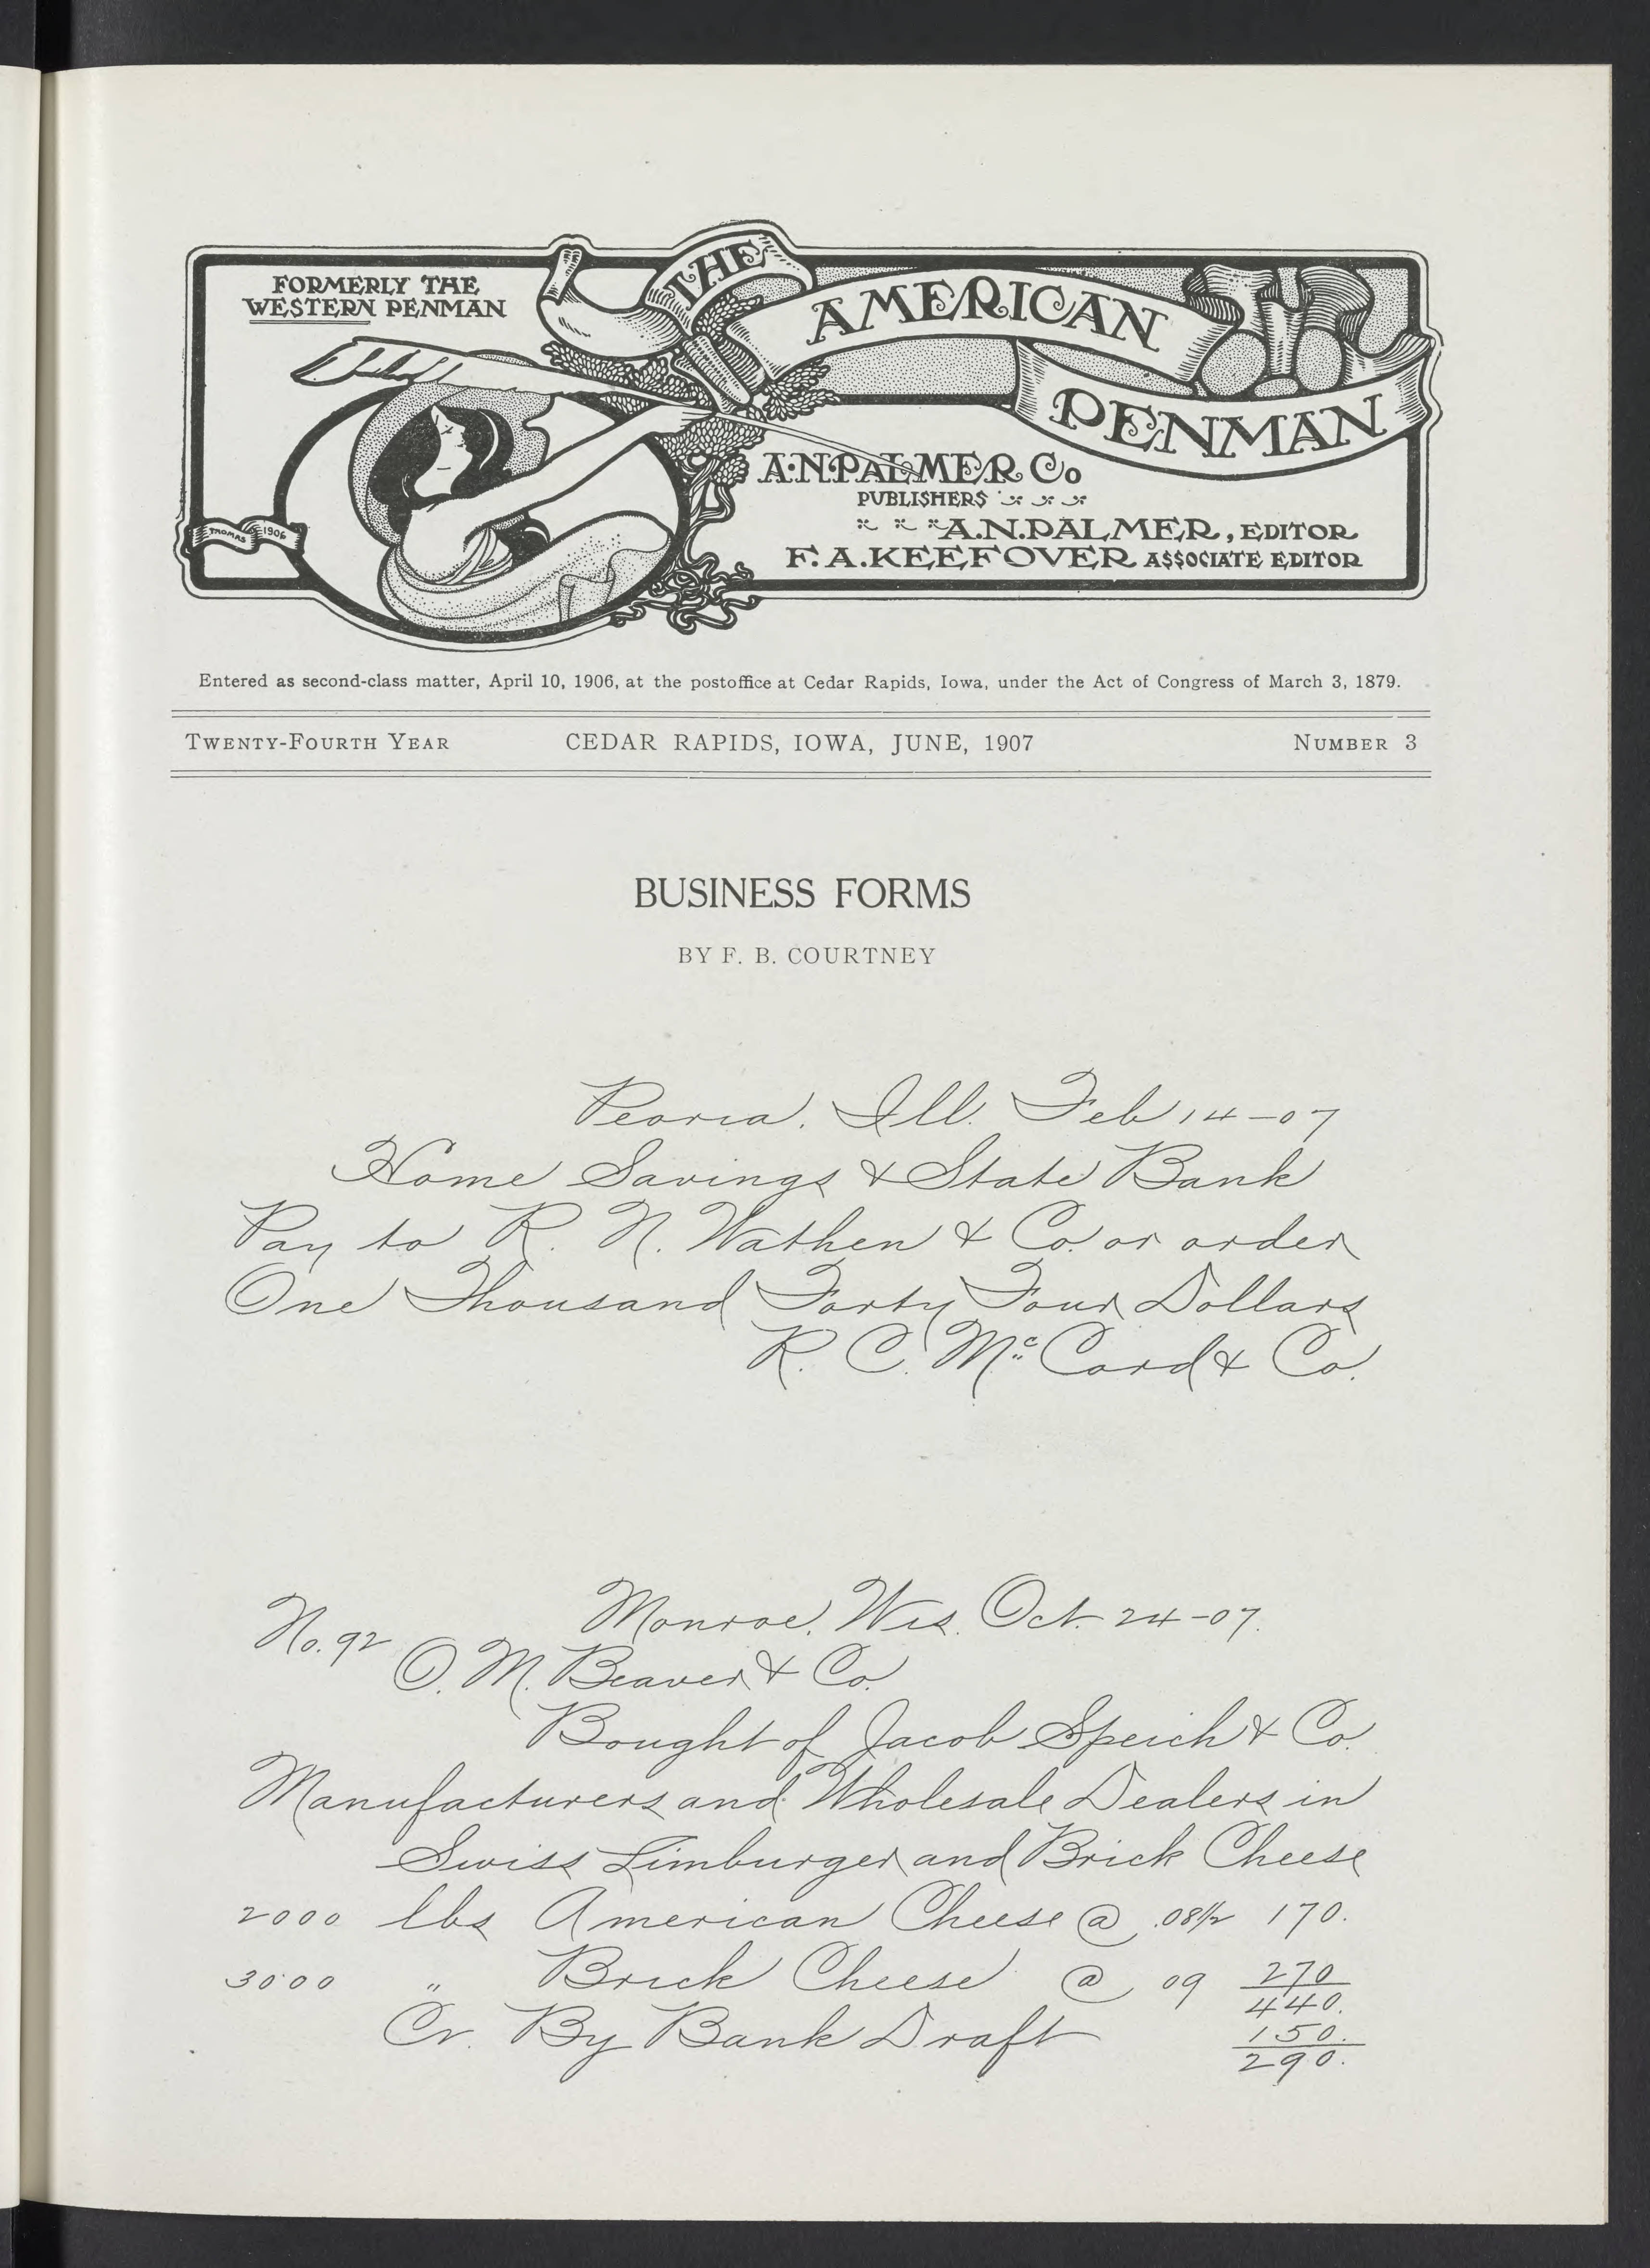 FORMERLY THE
WESTERN PENMAN
THE
AMERICAN
PENMAN
A.N. PALMER Co
PUBLISHERS
A.N. PALMER, EDITOR
F. A. KEEFOVER ASSOCIATE EDITOR
THOMAS 1906
Entered as second-class matter, April 10, 1906, at the postoffice at Cedar Rapids, Iowa, under the Act of Congress of March 3, 1879.
TWENTY-FOURTH YEAR CEDAR RAPIDS, IOWA, JUNE, 1907 NUMBER 3
BUSINESS FORMS
BY F. B. COURTNEY
Peoria, Ill. Feb 14-07
Home Savings & State Bank
Pay to R. N. Wathen & Co. or order
One Thousand Forty Four Dollars
R. C. McCord & Co.
Monroe, Wis. Oct. 24-07.
No. 92
O. M. Beaver & Co.
Bought of Jacob Speich & Co.
Manufacturers and Wholesale Dealers in
Swiss Limburger and Brick Cheese
2000 lbs American Cheese @ .08 1/2 170.
3000 " Brick Cheese @ 09 270
440.
Cr. By Bank Draft 150.
290.